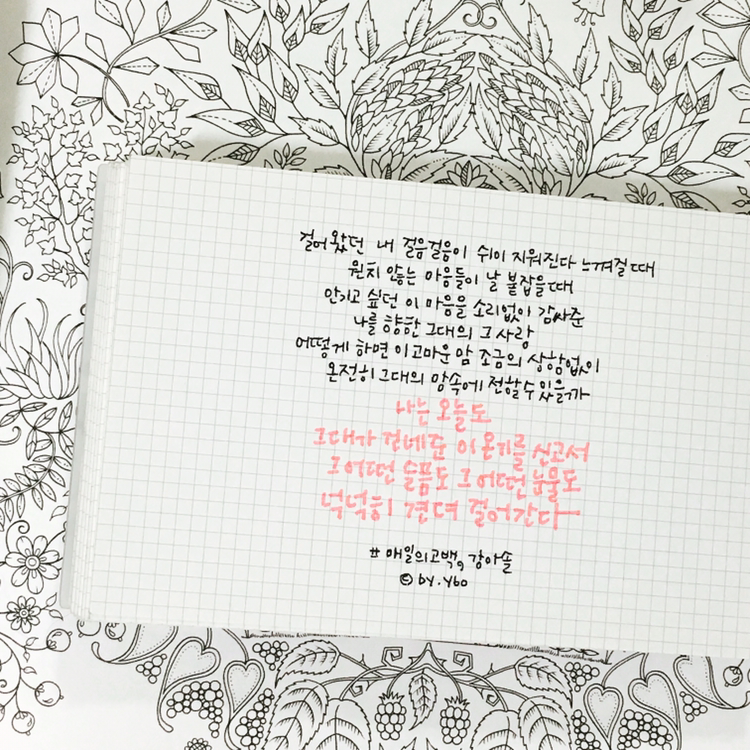 걸어왔던 내 걸음걸음이 쉬이 지워진다 느껴질때
원치 않는 마음들이 날 붙잡을때
안기고 싶던 이 마음을 소리없이 감싸준
나를 향한 그대의 그 사랑
어떻게 하면 이고마운 맘 조금의 상함없이
온전히 그대의 맘속에 전할수있을까
나는 오늘도
그대가 건네준 이 온기를 신고서
그어떤 슬픔도 그어떤 눈물도
넉넉히 견뎌 걸어간다
#매일의고백, 강아솔
© by. ybo